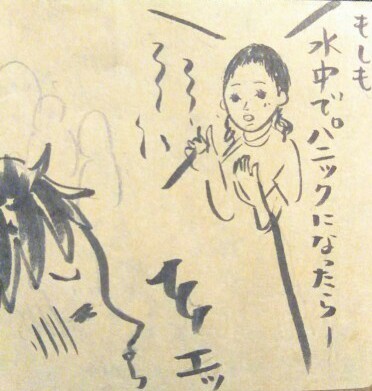 もしも
水中で。パニックになったら〜
エッ